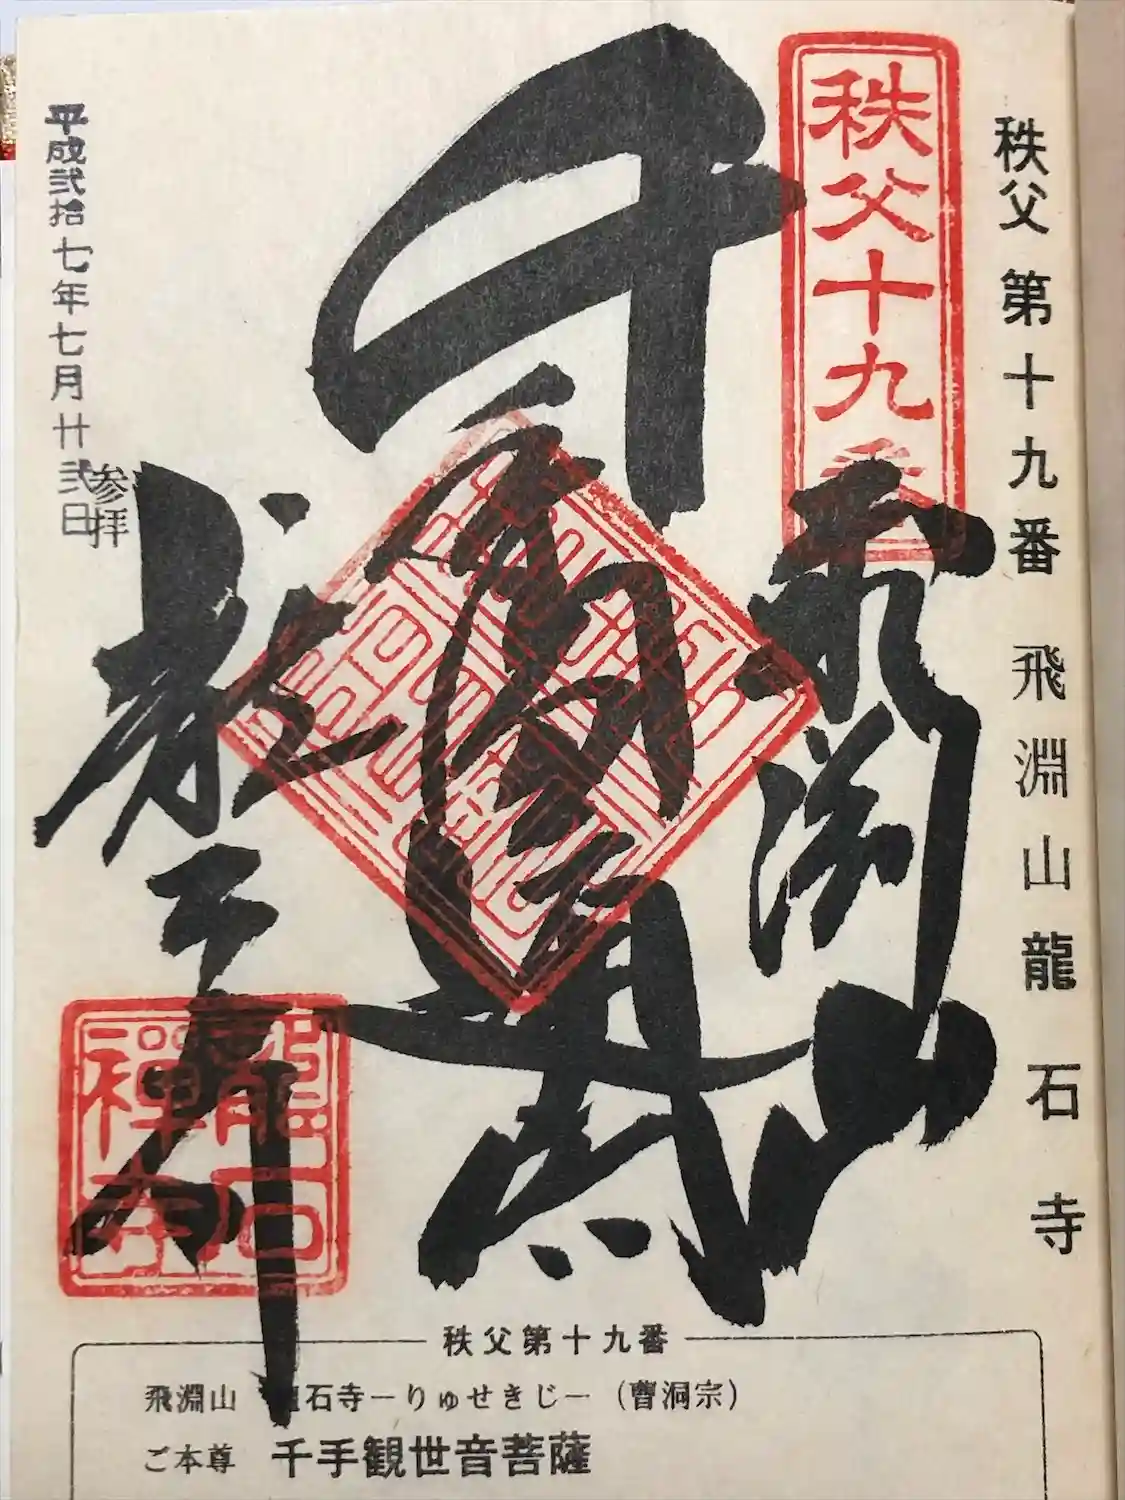 秩父第十九番 飛淵山龍石寺
秩父十九番
飛淵山
千
龍石寺
龍石禅寺
平成弐拾七年七月廿弐日
参拝
秩父第十九番
飛淵山 石寺ーりゅせきじー(曹洞宗)
ご本尊 千手観世音菩薩